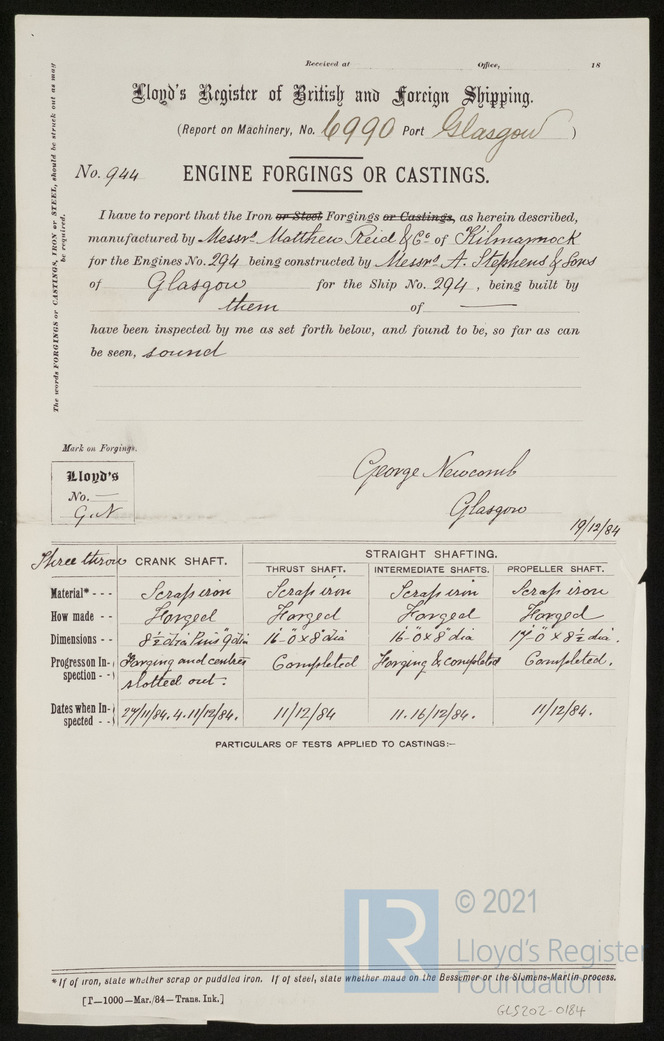 Received at Office, 18
Lloyd's Register of British and Foreign Shipping.
(Report on Machinery, No. 6990 Port Glasgow )
No. 944 ENGINE FORGINGS OR CASTINGS.
The words FORGINGS or CASTINGS, IRON or STEEL, should be struck out as may
be required.
I have to report that the Iron or Steel Forgings or Castings, as herein described,
manufactured by Messrs Matthew Reid & Co of Kilmarnock
for the Engines No. 294 being constructed by Messrs A. Stephens & Sons
of Glasgow for the Ship No. 294, being built by
them of —
have been inspected by me as set forth below, and found to be, so far as can
be seen, sound
Mark on Forgings.
Lloyd's
No. —
G.N
George Newcomb
Glasgow
19/12/84
Three throw CRANK SHAFT. STRAIGHT SHAFTING.
THRUST SHAFT. INTERMEDIATE SHAFTS. PROPELLER SHAFT.
Material* - - - Scrap iron Scrap iron Scrap iron Scrap iron
How made - - Forged Forged Forged Forged
Dimensions - - 8½" dia Pins 9" dia 16'-0" x 8" dia 16'-0" x 8" dia 17'-0" x 8½ dia.
Progress on In- Forging and centres Completed Forging & completed Completed.
spection - - slotted out.
Dates when In- 27/11/84. 4. 11/12/84. 11/12/84 11. 16/12/84. 11/12/84.
spected - -
PARTICULARS OF TESTS APPLIED TO CASTINGS:—
LR © 2021
Lloyd's Register
Foundation
*If of iron, state whether scrap or puddled iron. If of steel, state whether made on the Bessemer or the Siemens-Martin process.
[T—1000—Mar./84—Trans. Ink.]
GLS202-0184